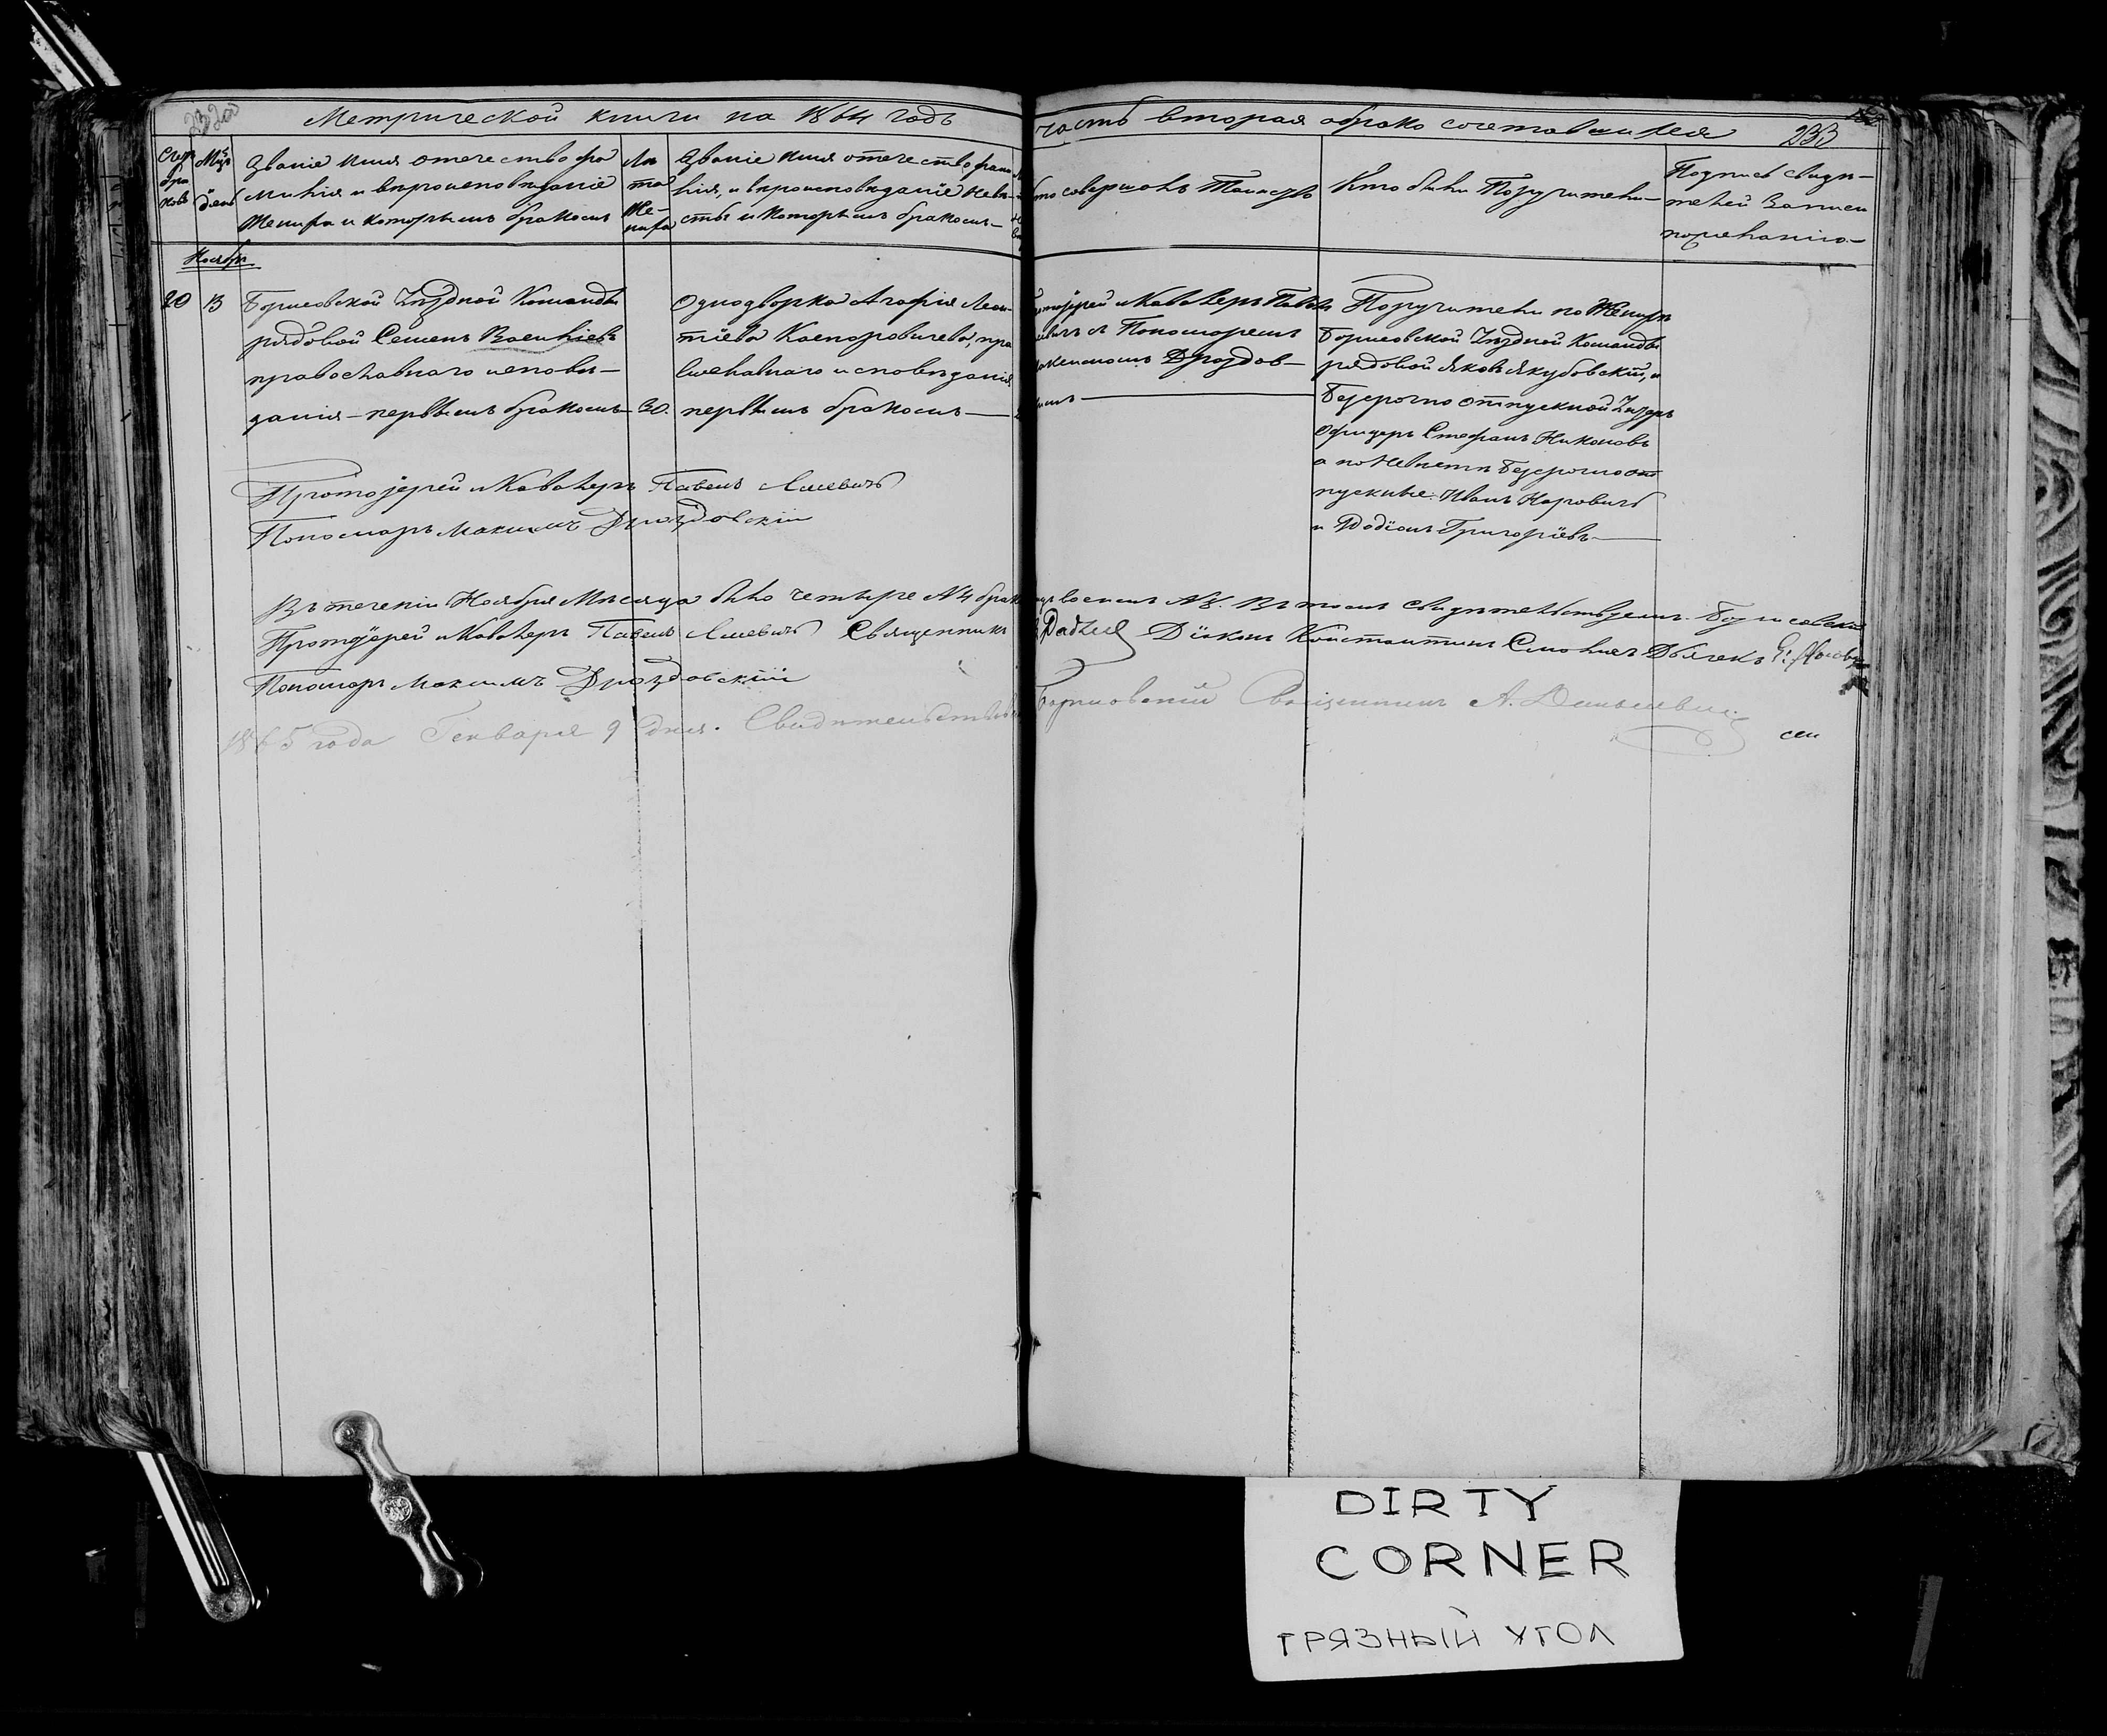 Метрической книги на 1864 годъ
часть вторая о бракосочетавшихся 233
Счетъ браковъ
Мцъ
день
Званіе имя отечество фа
милія и вѣроисповѣданіе
жениха и которымъ бракомъ
Лѣ
та
же-
ниха
Званіе имя отечество, фами
лія, и вѣроисповѣданіе невѣ-
сты и которымъ бракомъ
Кто совершалъ Таинство
Кто были Поручители
Подпись свидѣ-
телей записи
по желанію
Ноябрь
20 13
Борисовской Уѣздной Команды
рядовой Семенъ Васильевъ
православнаго исповѣ-
данія первымъ бракомъ 30.
Однодворка Агафія Леон-
тіева Каспоровичева, пра
славнаго исповѣданія
первымъ бракомъ
Протоіерей и Кавалеръ Павелъ
съ Пономаремъ
Дроздов-
Поручители по Женихѣ
Борисовской Уѣздной Команды
рядовой Яковъ Якубовскій, и
безсрочно отпускной Унтеръ
Офицеръ Стефанъ Никоновъ
а по Невѣстѣ безсрочно от
пускные Иванъ Карповичъ
и Родіонъ Григоріевъ
Протоіерей и Кавалеръ Павелъ
Пономарь Максимъ Дроздовскій
Въ теченіи Ноября Мѣсяца было четыре №4 брака
въ томъ свидѣтельствуемъ. Борисовской
Протоіерей и Кавалеръ Павелъ Священникъ
Діаконъ Константинъ Дьячекъ
Пономарь Максимъ Дроздовскій
1865 года Генваря 9 дня. Свидѣтельствовалъ
Борисовскій Священникъ А.
DIRTY
CORNER
ГРЯЗНЫЙ УГОЛ